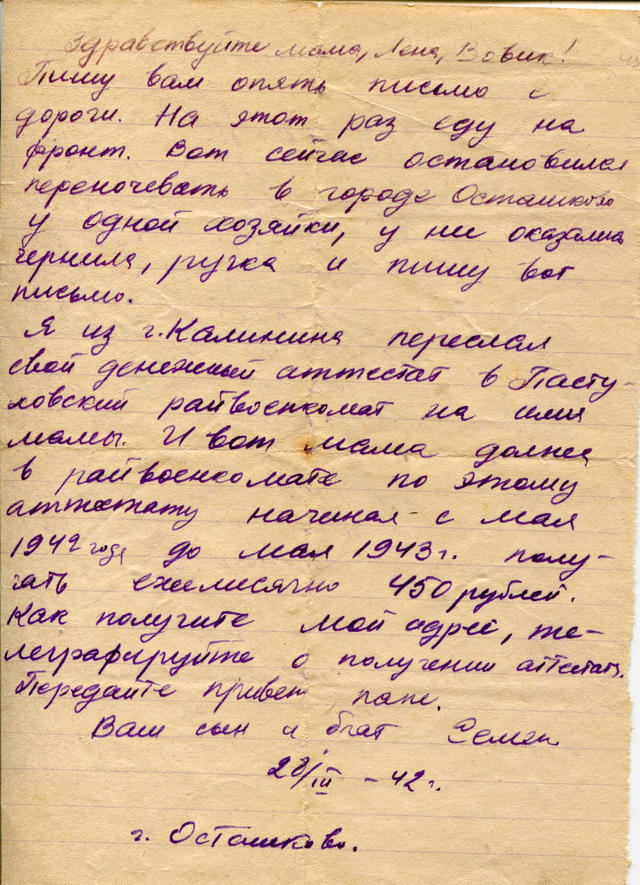 Здравствуйте мама, Лена, Вовик!
Пишу вам опять письмо с
дороги. На этот раз еду на
фронт. Вот сейчас остановился
переночевать в городе Осташково
у одной хозяйки, у ней оказались
чернила, ручка и пишу вот
письмо.
Я из г. Калинина переслал
свой денежный аттестат в Пасту-
ховский райвоенкомат на имя
мамы. И вот мама должна
в райвоенкомате по этому
аттестату начиная с мая
1942 года до мая 1943 г. полу-
чать ежемесячно 450 рублей.
Как получите мой адрес, те-
леграфируйте о получении аттестата.
Передайте привет папе.
Ваш сын и брат Семен
/III - 42 г.
г. Осташково.